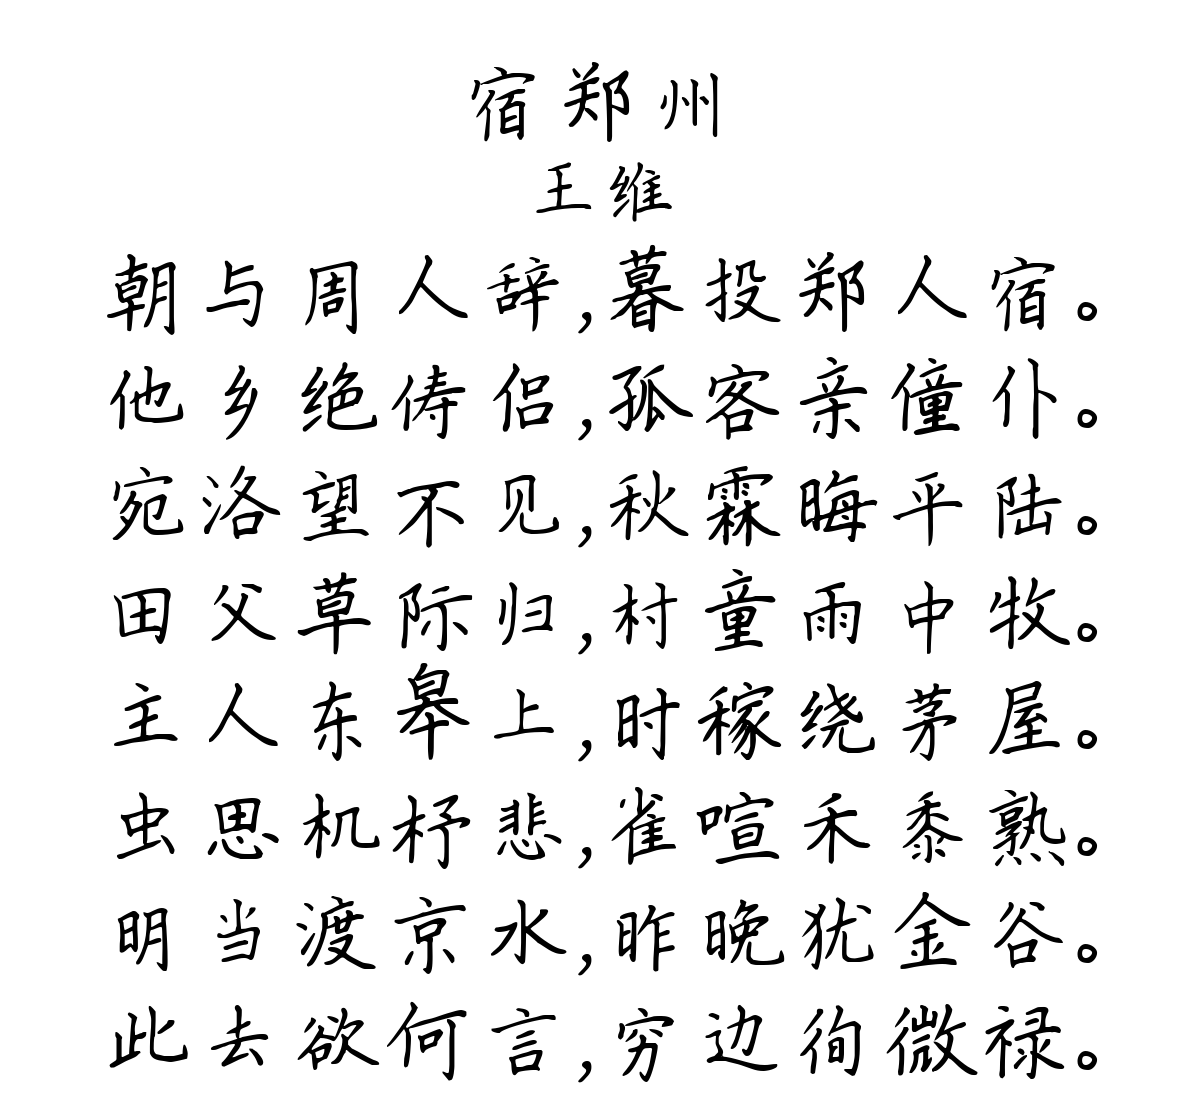 宿郑州
王维
朝与周人辞,暮投郑人宿。
他乡绝俦侣,孤客亲僮仆。
宛洛望不见,秋霖晦平陆。
田父草际归,村童雨中牧。
主人东皋上,时稼绕茅屋。
虫思机杼悲,雀喧禾黍熟。
明当渡京水,昨晚犹金谷。
此去欲何言,穷边徇微禄。